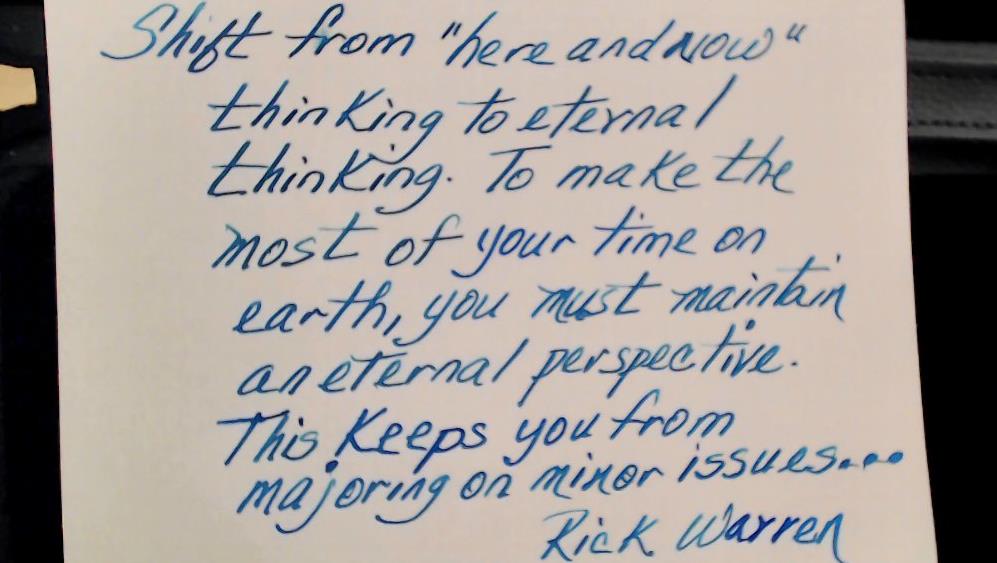 Shift from "here and now"
thinking to eternal
thinking. To make the
most of your time on
earth, you must maintain
an eternal perspective.
This keeps you from
majoring on minor issues...
Rick Warren